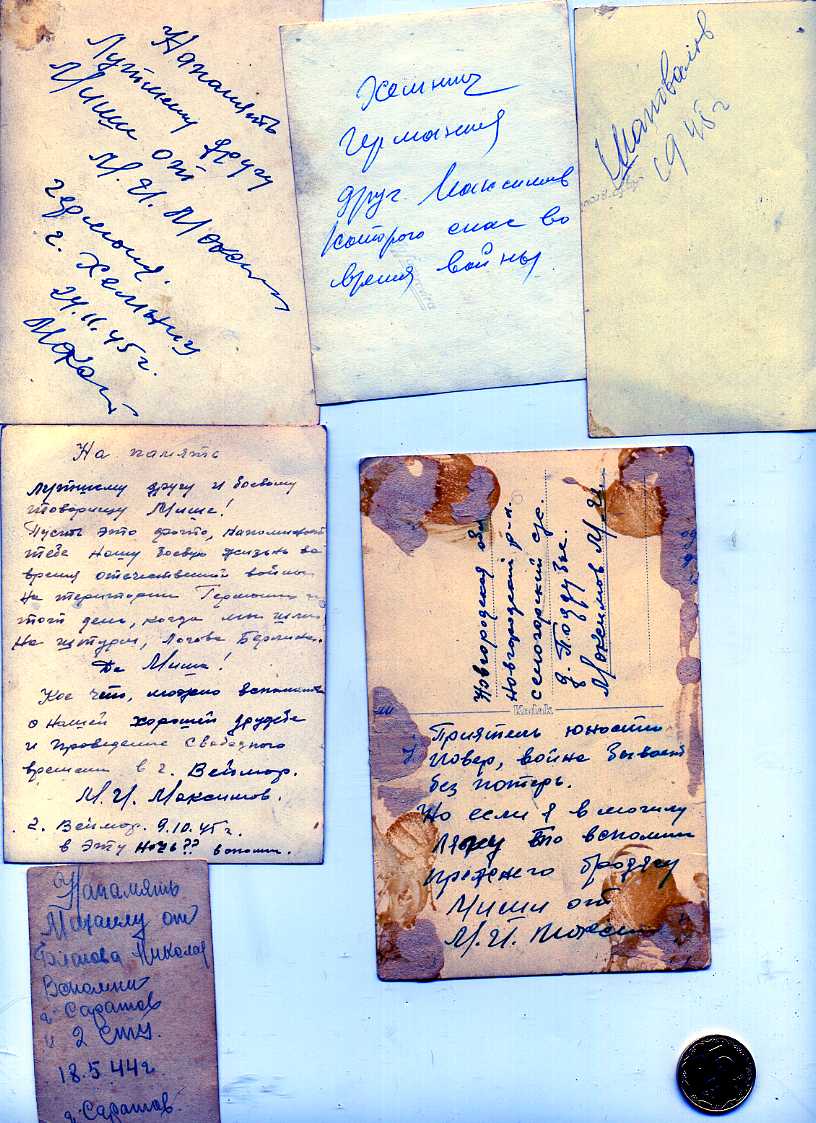 Напамять
Лутшему другу
Миши от
М. И. Максим
Германия.
г. Хемниц
24.11.45г.
Хемниц
Германия
друг. Максимов
которого спас во
время войны
Шаповалов
1945г
На память
Лутшему другу и боевому
товарищу Мише!
Пусть это фото, напоминает
тебе нашу боевую жизнь во
время отечественной войны
На територии Германии и
тот день, когда мы шли
На штурм, Логова Берлина.
Да Миша!
Кое что, можно вспомнить
о нашей хорошей дружбе
и проведение свободного
времени в г. Веймор.
М. И. Максимов.
г. Веймор. 9.10.45г.
в эту ночь?? вспомн.
Новгородская об
Новгородский р-н.
селогорский с/с.
д. Поддубье.
Максимов М. И.
Kodak
Приятель юности
повер, война бывает
без потерь.
Но если я в могилу
лягу то вспомни
прежнего бродягу
Миши от
М. И. Максим
Напамять
Михаилу от
Николая
Вспомни
г. Саратов
и 2 
18.5 44г
г. Саратов